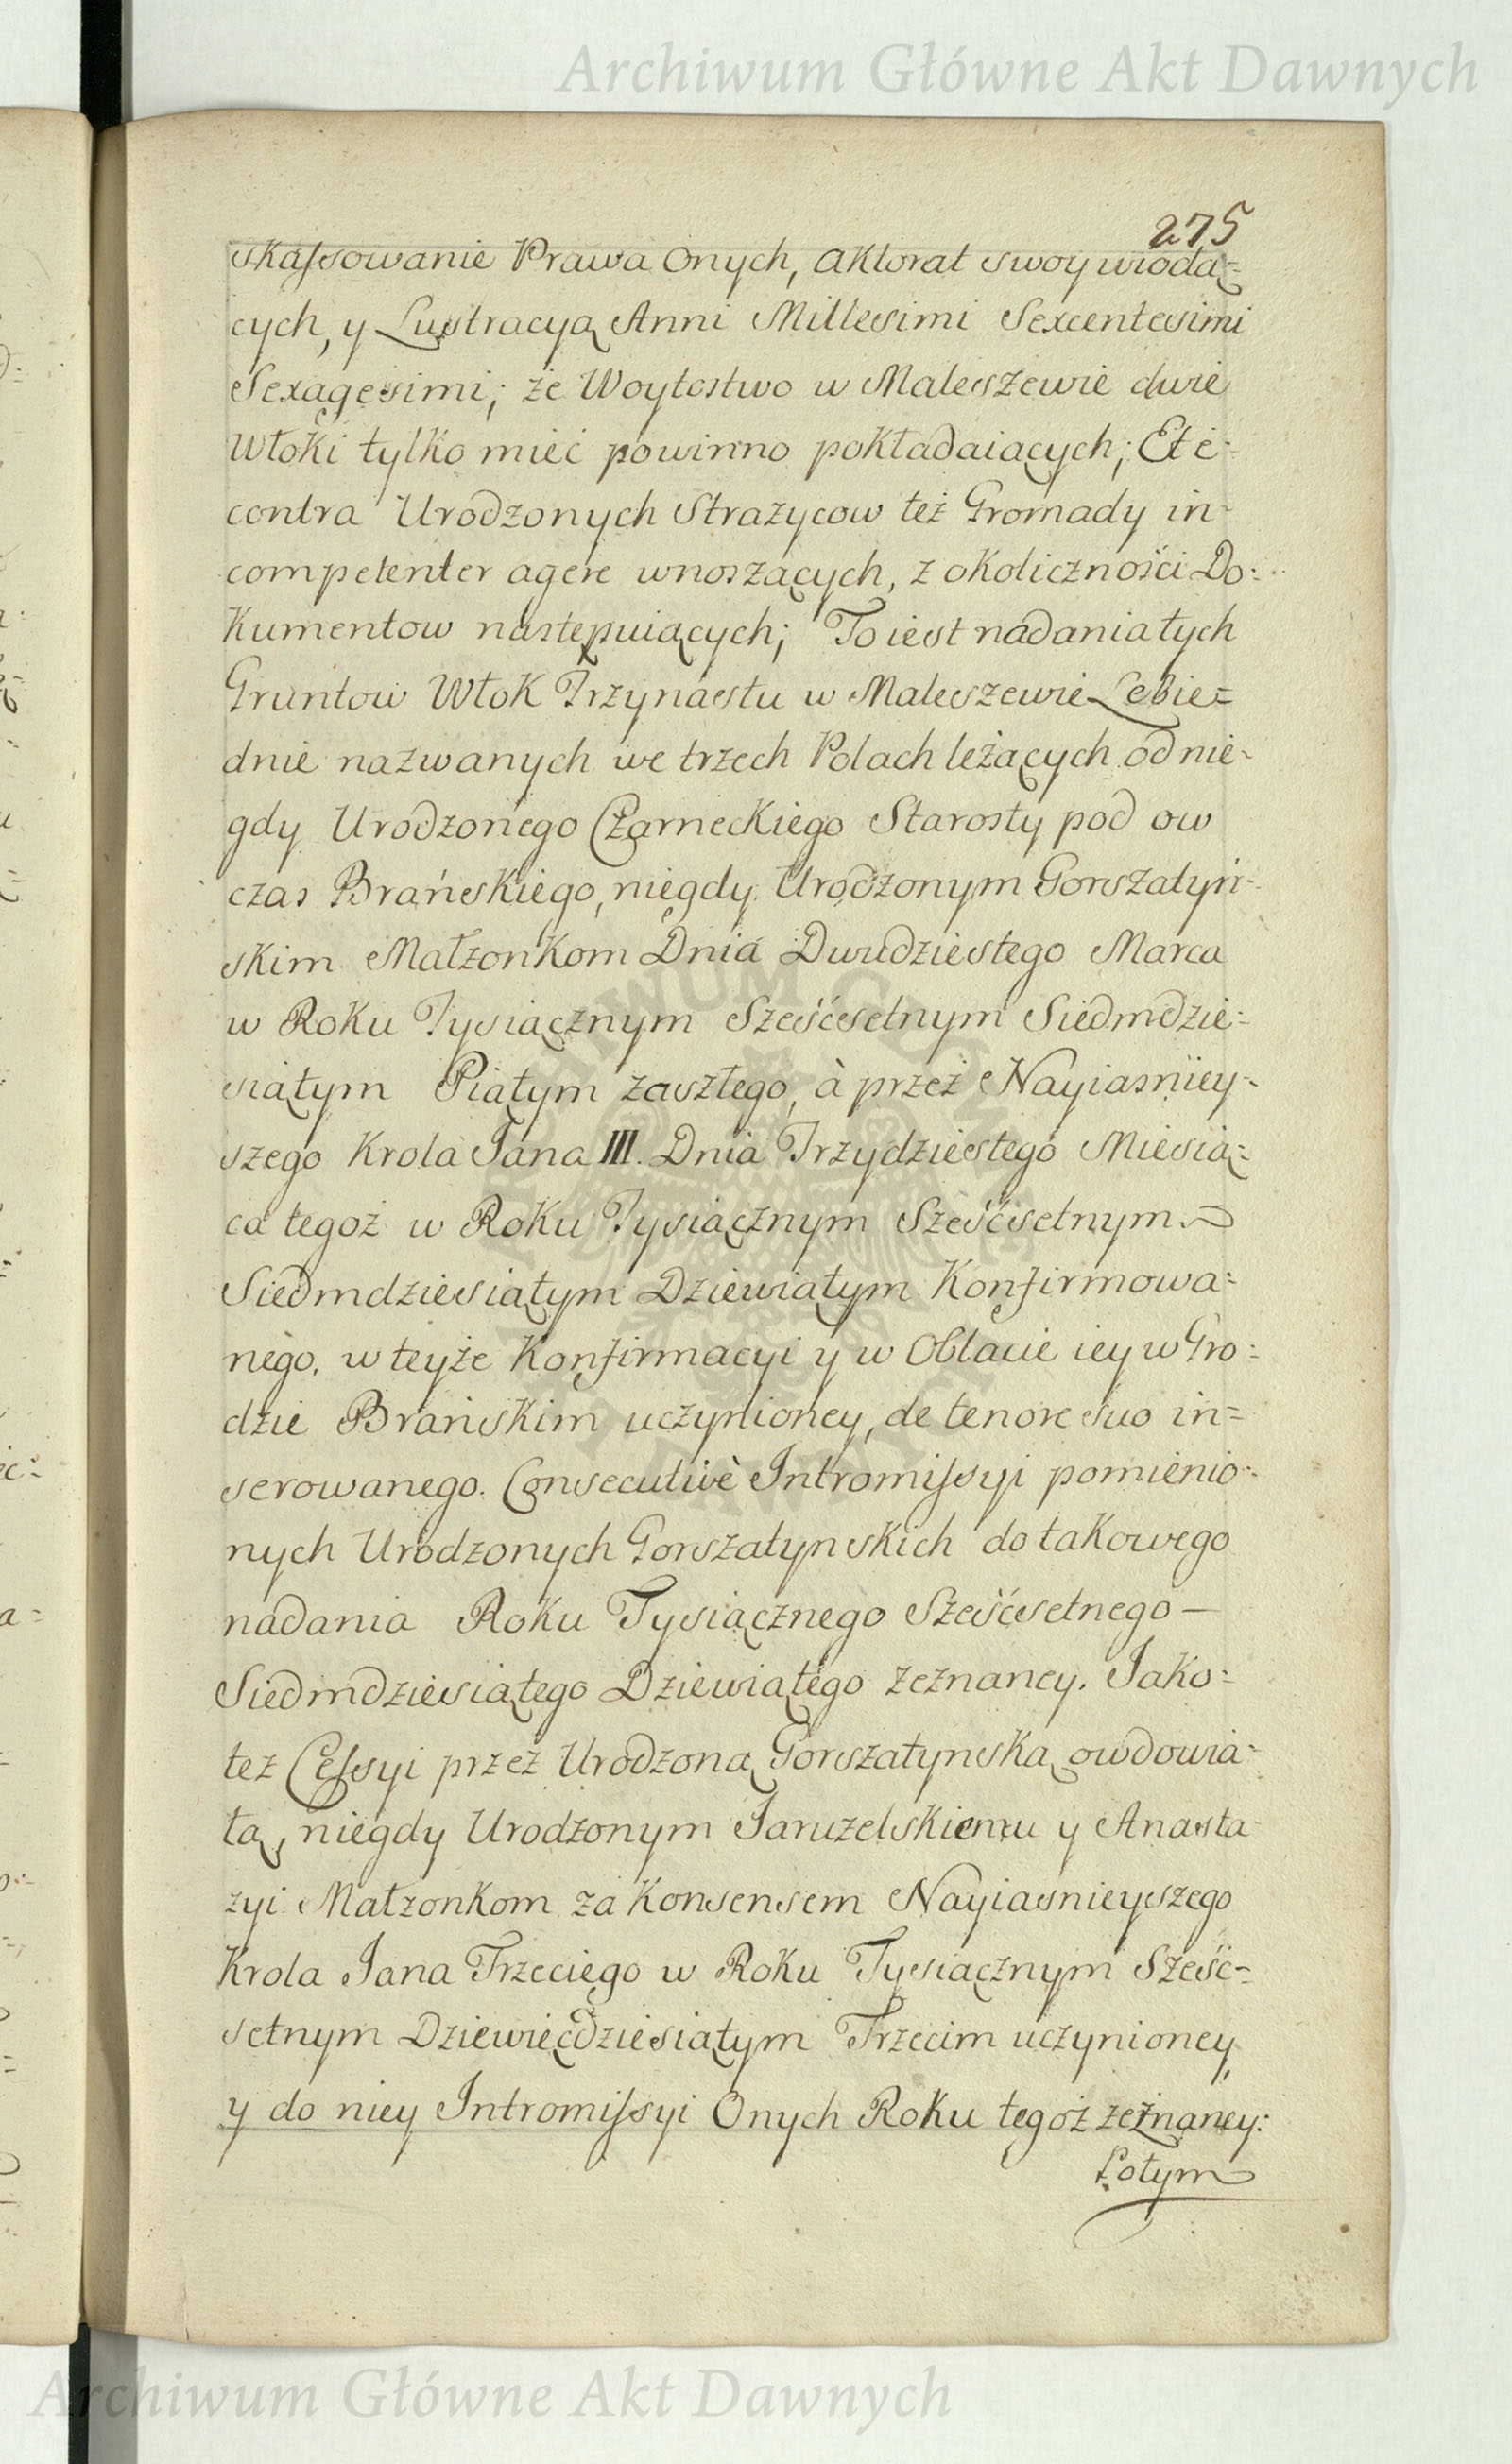 Archiwum Główne Akt Dawnych
275
skassowanie Prawa Onych, Aktorat swoy wiodą=
cych, y Lustracyą Anni Millesimi Sexcentesimi
Sexagesimi; że Woytostwo w Maleszewie dwie
Włoki tylko mieć powinno pokładaiących; Et e=
contra Urodzonych Strażycow też Gromady in=
competenter agere wnoszących, z okoliczności Do=
kumentow następuiących; To iest nadania tych
Gruntow Włok Trzynastu w Maleszewie Lebie=
dnie nazwanych we trzech Polach leżących od nie=
gdy Urodzonego Czarneckiego Starosty pod ow
czas Brańskiego, niegdy Urodzonym Gorszatyń=
skim Małżonkom Dnia Dwudziestego Marca
w Roku Tysiącznym Sześćsetnym Siedmdzie=
siątym Piątym zaszłego, à przez Nayiasniey=
szego Krola Jana III. Dnia Trzydziestego Miesią=
ca tegoż w Roku Tysiącznym Sześćsetnym
Siedmdziesiątym Dziewiątym Konfirmowa=
nego, w teyże Konfirmacyi y w Oblacie iey w Gro=
dzie Brańskim uczynioney, de tenore suo in=
serowanego. Consecutivè Intromissyi pomienio=
nych Urodzonych Gorszatynskich do takowego
nadania Roku Tysiącznego Sześćsetnego —
Siedmdziesiątego Dziewiątego zeznaney. Jako=
tez Cessyi przez Urodzoną Gorszatynską owdowia=
łą, niegdy Urodzonym Jaruzelskiemu y Anasta
zyi Małzonkom za Konsensem Nayiasnieyszego
Krola Jana Trzeciego w Roku Tysiącznym Sześć=
setnym Dziewięćdziesiątym Trzecim uczynioney
y do niey Intromissyi Onych Roku tegoż zeznaney:
Potym
Archiwum Główne Akt Dawnych